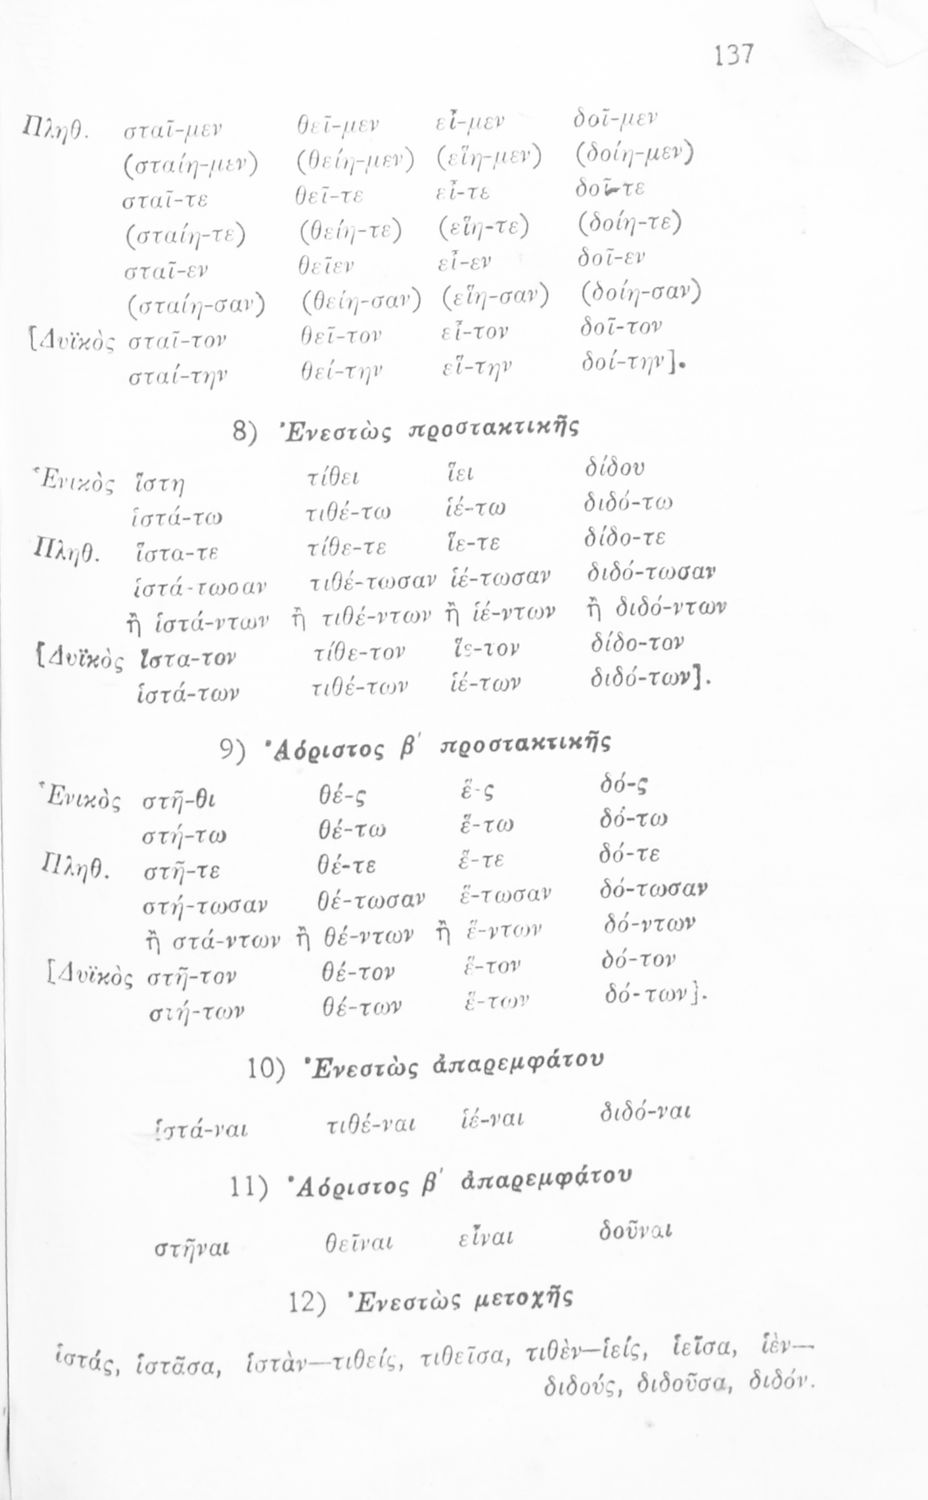 137
Πληθ. σταῖ-μεν θεῖ-μεν εἶ-μεν δοῖ-μεν
(σταίη-μεν) (θείη-μεν) (εἵη-μεν) (δοίη-μεν)
σταῖ-τε θεῖ-τε εἶ-τε δοῖ-τε
(σταίη-τε) (θείη-τε) (εἵη-τε) (δοίη-τε)
σταῖ-εν θεῖεν εἶ-εν δοῖ-εν
(σταίη-σαν) (θείη-σαν) (εἵη-σαν) (δοίη-σαν)
[Δυϊκὸς σταῖ-τον θεῖ-τον εἶ-τον δοῖ-τον
σταί-την θεί-την εἵ-την δοί-την].
8) Ἐνεστὼς προστακτικῆς
Ἑνικὸς ἵστη τίθει ἵει δίδου
ἱστά-τω τιθέ-τω ἱέ-τω διδό-τω
Πληθ. ἵστα-τε τίθε-τε ἵε-τε δίδο-τε
ἱστά-τωσαν τιθέ-τωσαν ἱέ-τωσαν διδό-τωσαν
ἢ ἱστά-ντων ἢ τιθέ-ντων ἢ ἱέ-ντων ἢ διδό-ντων
[Δυϊκὸς ἵστα-τον τίθε-τον ἵε-τον δίδο-τον
ἱστά-των τιθέ-των ἱέ-των διδό-των].
9) Ἀόριστος β΄ προστακτικῆς
Ἑνικὸς στῆ-θι θέ-ς ἕ-ς δό-ς
στή-τω θέ-τω ἕ-τω δό-τω
Πληθ. στῆ-τε θέ-τε ἕ-τε δό-τε
στή-τωσαν θέ-τωσαν ἕ-τωσαν δό-τωσαν
ἢ στά-ντων ἢ θέ-ντων ἢ ἕ-ντων δό-ντων
[Δυϊκὸς στῆ-τον θέ-τον ἕ-τον δό-τον
στή-των θέ-των ἕ-των δό-των].
10) Ἐνεστὼς ἀπαρεμφάτου
ἱστά-ναι τιθέ-ναι ἱέ-ναι διδό-ναι
11) Ἀόριστος β΄ ἀπαρεμφάτου
στῆναι θεῖναι εἶναι δοῦναι
12) Ἐνεστὼς μετοχῆς
ἱστάς, ἱστᾶσα, ἱστὰν—τιθείς, τιθεῖσα, τιθὲν—ἱείς, ἱεῖσα, ἱὲν—
διδούς, διδοῦσα, διδόν.